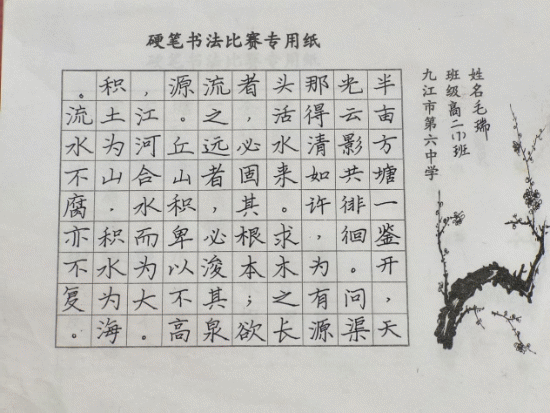 硬笔书法比赛专用纸
姓名毛瑞
班级高二班
九江市第六中学
半亩方塘一鉴开,天
光云影共徘徊。问渠
那得清如许,为有源
头活水来。求木之长
者,必固其根本;欲
流之远者,必浚其泉
源。丘山积卑以不高
,江河合水而为大。
积土为山.积水为海
。流水不腐亦不复。